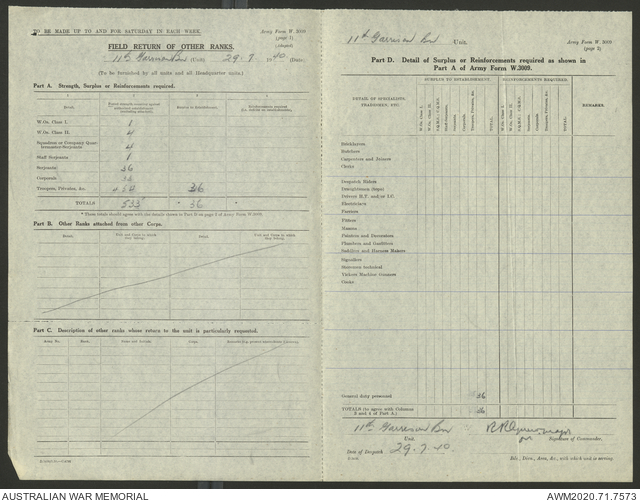 TO BE MADE UP TO AND FOR SATURDAY IN EACH WEEK.
Army Form W. 3009
(page 1)
(adapted)
FIELD RETURN OF OTHER RANKS.
11th Garrison Bn (Unit) 29.7.1940 (Date)
(To be furnished by all units and all Headquarter units.)
Part A. Strength, Surplus or Reinforcements required.
W.Os. Class I. 1
W.Os. Class II. 4
Squadron or Company Quartermaster-Serjeants 4
Staff Serjeants 1
Serjeants 36
Corporals
Troopers, Privates, &c. 36
TOTALS 533 36
* These totals should agree with the details shown in Part D on page 2 of Army Form W.3009.
Part B. Other Ranks attached from other Corps.
Part C. Description of other ranks whose return to the unit is particularly requested.
Army No. Rank. Name and Initials. Corps.
11th Garrison Bn Unit.
Army Form W. 3009
(page 2)
Part D. Detail of Surplus or Reinforcements required as shown in
Part A of Army Form W.3009.
DETAIL OF SPECIALISTS, TRADESMEN, ETC.
SURPLUS TO ESTABLISHMENT.
REINFORCEMENTS REQUIRED.
REMARKS.
W.Os. Class I.
W.Os. Class II.
Serjeants.
Corporals.
TOTAL.
W.Os. Class I.
W.Os. Class II.
Serjeants.
Corporals.
TOTAL.
Bricklayers
Butchers
Carpenters and Joiners
Clerks
Despatch Riders
Draughtsmen (topo)
Drivers H.T. and/or I.C.
Electricians
Farriers
Fitters
Masons
Painters and Decorators
Plumbers and Gasfitters
Saddlers and Harness Makers
Signallers
Storemen technical
Vickers Machine Gunners
Cooks
General duty personnel 36
TOTALS (to agree with Columns 3 and 4 of Part A.) 36
11th Garrison Bn
Unit.
Major
Signature of Commander.
Date of Despatch 29.7.40
Bde., Divn., Area, &c., with which unit is serving.
AUSTRALIAN WAR MEMORIAL
AWM2020.71.7573